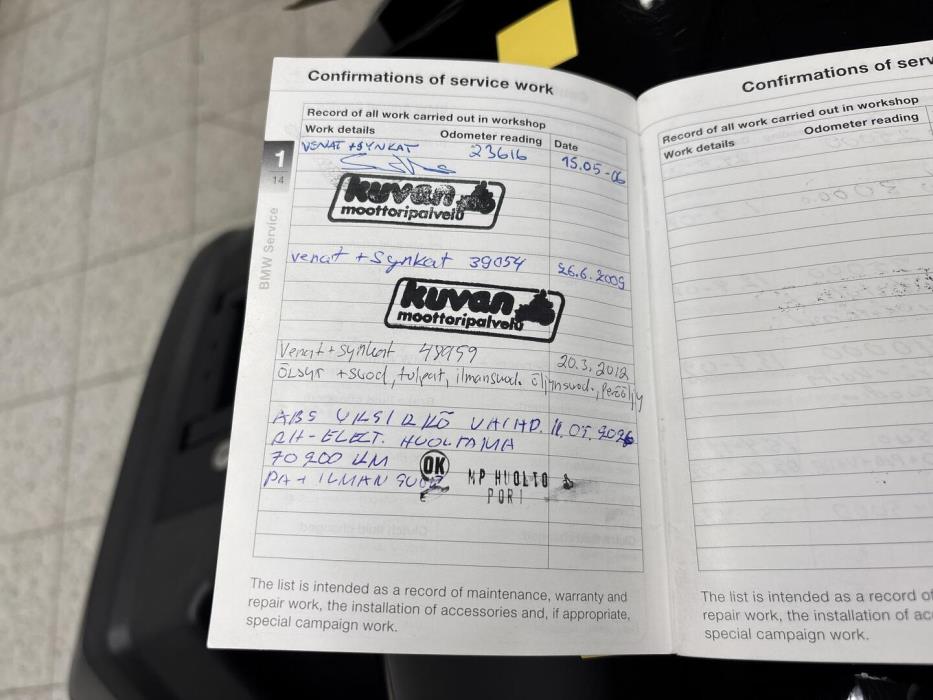 Confirmations of service work
Record of all work carried out in workshop
Work details Odometer reading Date
VENAT + SYNKAT 23616 15.05-06
kuvan
moottoripalvelu
venat + Synkat 39054 26.6.2009
kuvan
moottoripalvelu
Venat + Synkat 48959 20.3.2012
ÖLSYT + SUOD, tulpat, ilmansuod. öljynsuod., peräöljy
ABS YKSIKKÖ VAIHD.
RH-ELECT. HUOLTAMA
70200 KM OK MP HUOLTO
PA + ILMAN SUOD PORI
The list is intended as a record of maintenance, warranty and
repair work, the installation of accessories and, if appropriate,
special campaign work.
1
14
BMW Service
Confirmations of serv
Record of all work carried out in workshop
Work details Odometer reading
The list is intended as a record of
repair work, the installation of ac
special campaign work.